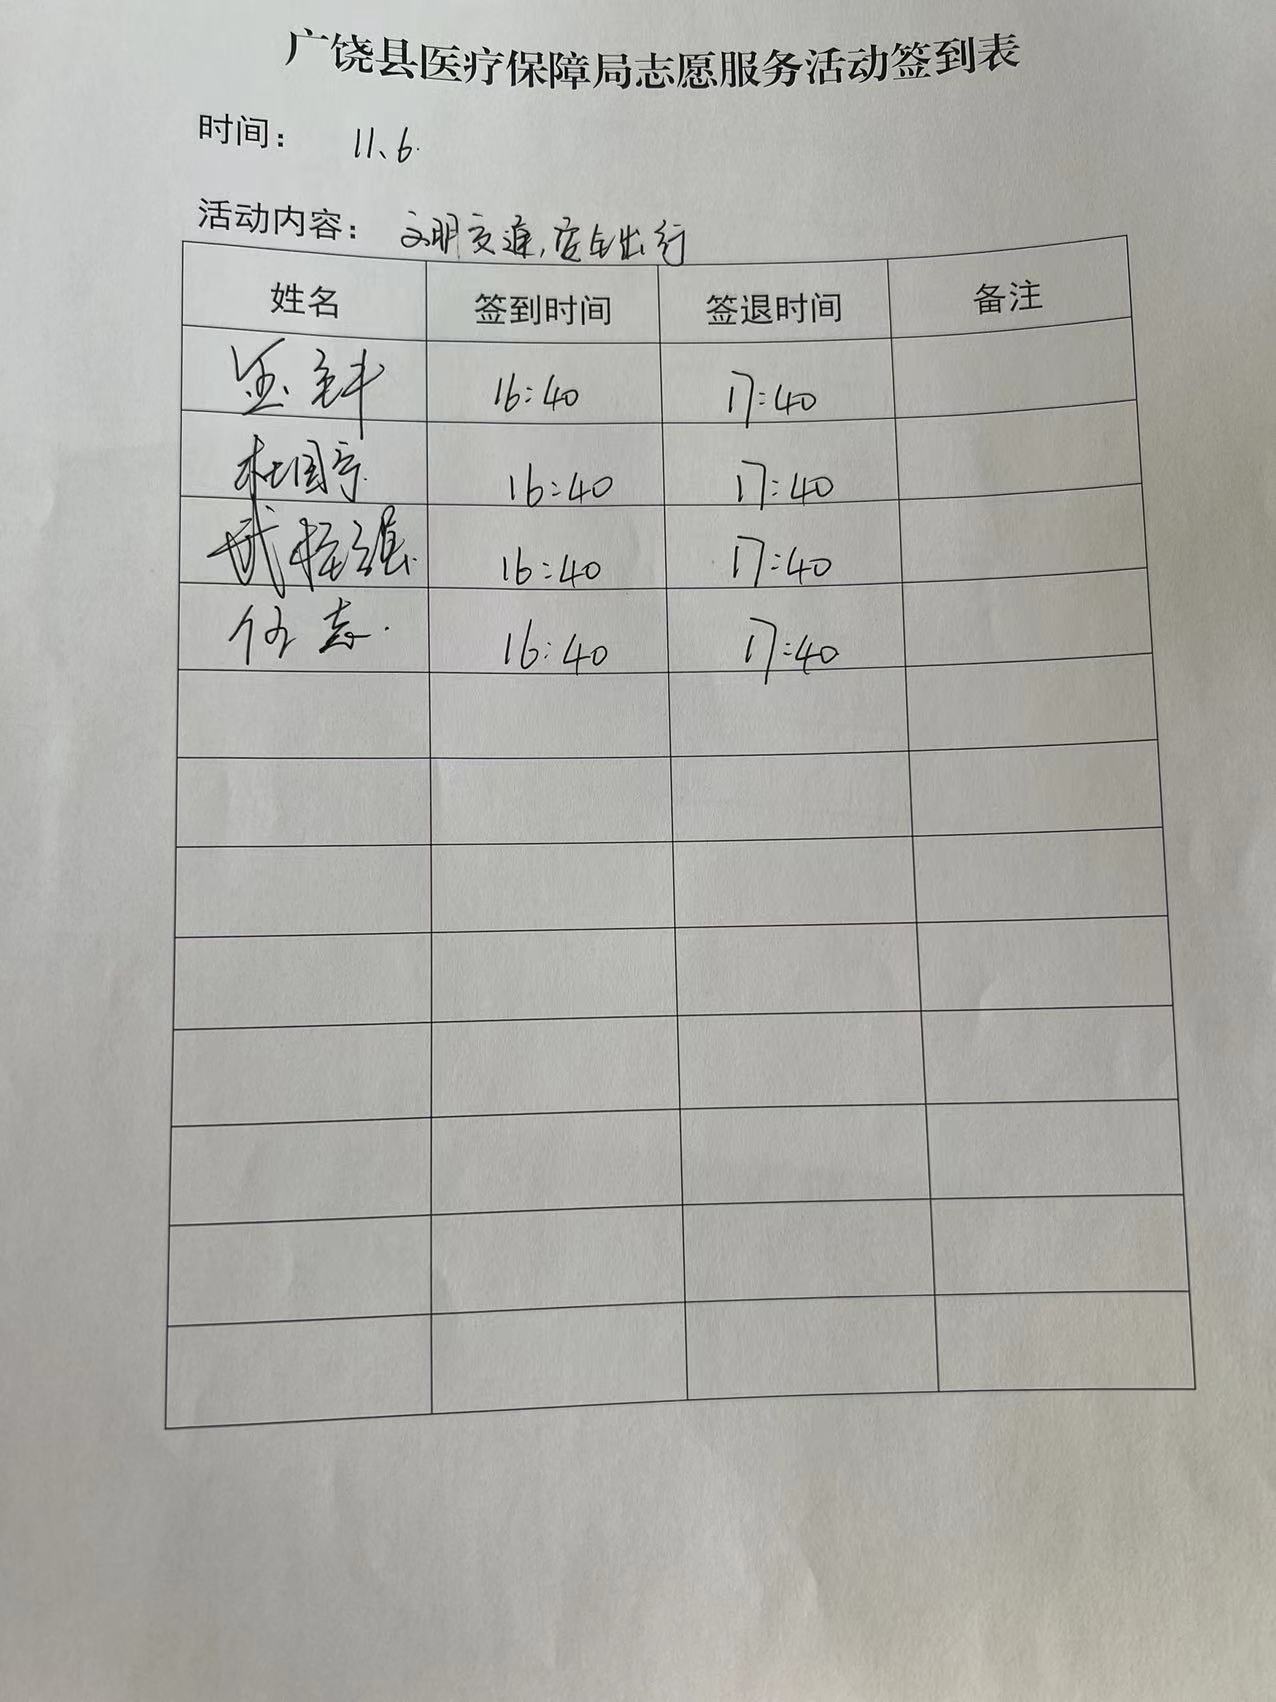 广饶县医疗保障局志愿服务活动签到表
时间： 11、6.
活动内容： 文明交通,安全出行
姓名 签到时间 签退时间 备注
16:40 17:40
杜国宁 16:40 17:40
武 强 16:40 17:40
16:40 17:40